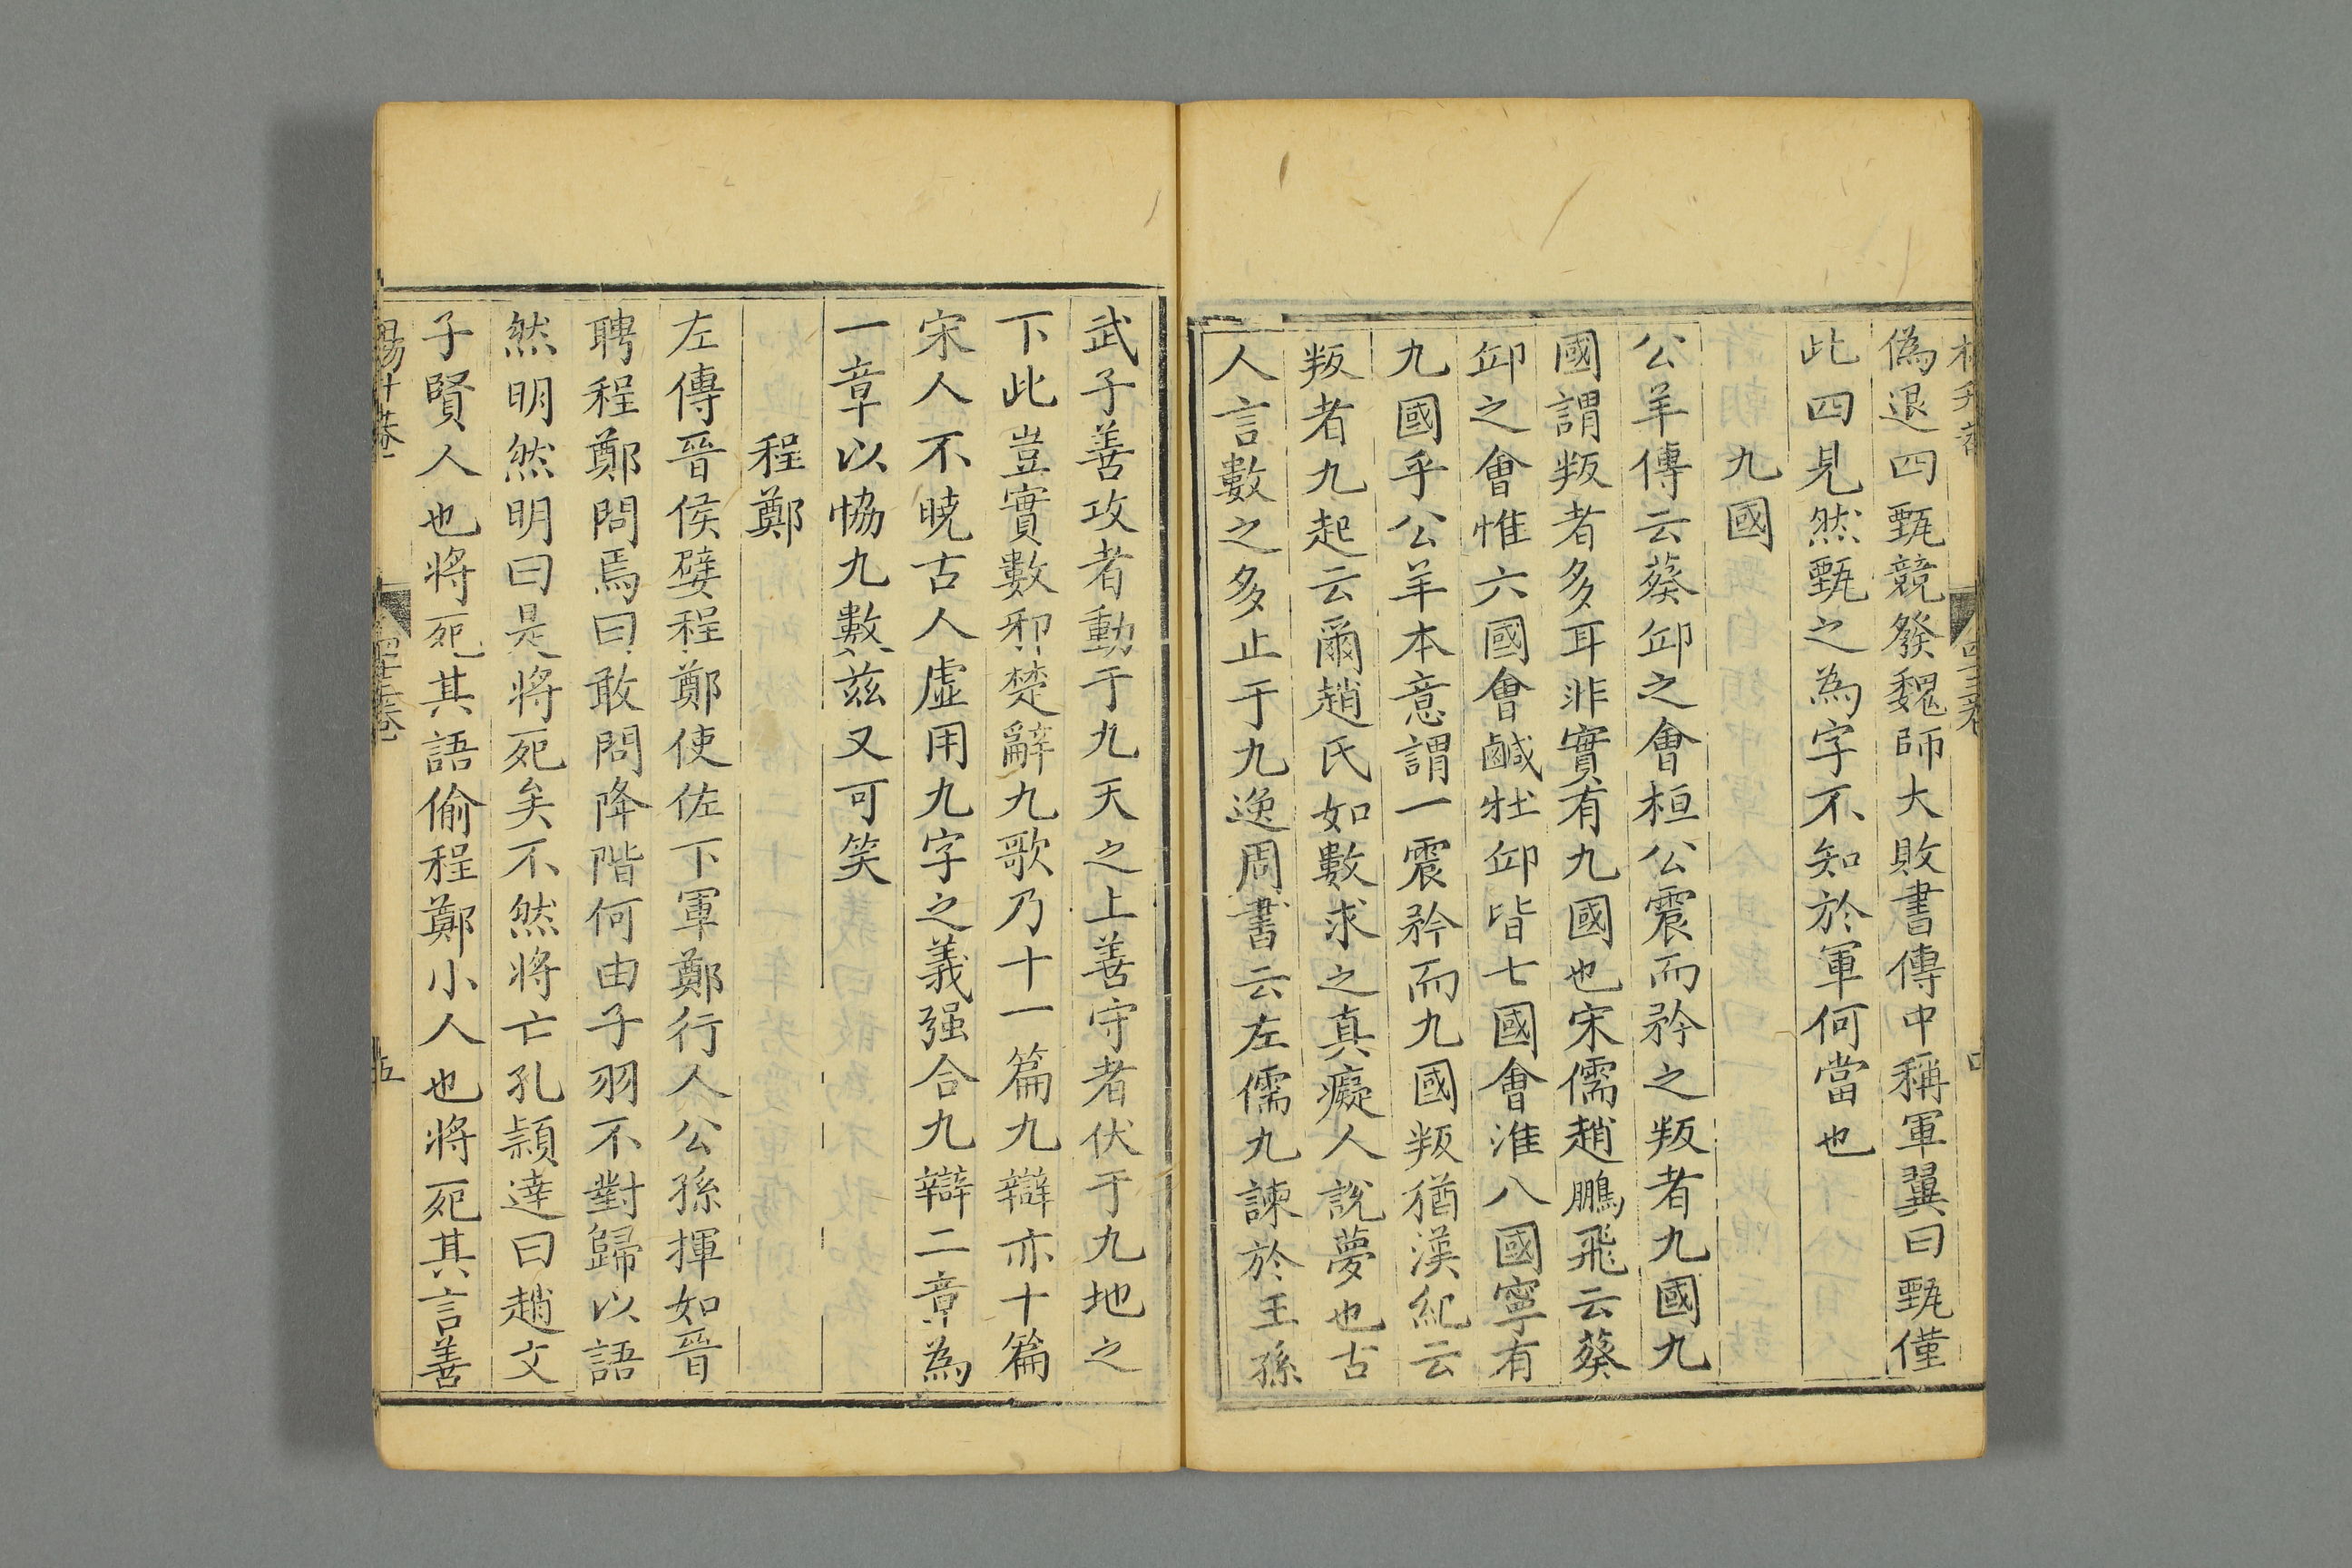 偽退四甄競發魏師大敗書傳中稱軍翼曰甄僅
此四見然甄之為字不知於軍何當也
九國
公羊傳云葵邱之會桓公震而矜之叛者九國九
國謂叛者多耳非實有九國也宋儒趙鵬飛云葵
邱之會惟六國會鹹牡邱皆七國會淮八國寧有
九國乎公羊本意謂一震矜而九國叛猶漢紀云
叛者九起云爾趙氏如數求之真癡人說夢也古
人言數之多止于九逸周書云左儒九諫於王孫
武子善攻者動于九天之上善守者伏于九地之
下此豈實數邪楚辭九歌乃十一篇九辯亦十篇
宋人不曉古人虛用九字之義强合九辯二章為
一章以恊九數兹又可笑
程鄭
左傳晉侯嬖程鄭使佐下軍鄭行人公孫揮如晉
聘程鄭問焉曰敢問降階何由子羽不對歸以語
然明然明曰是將死矣不然將亡孔頴達曰趙文
子賢人也將死其語偷程鄭小人也將死其言善
五